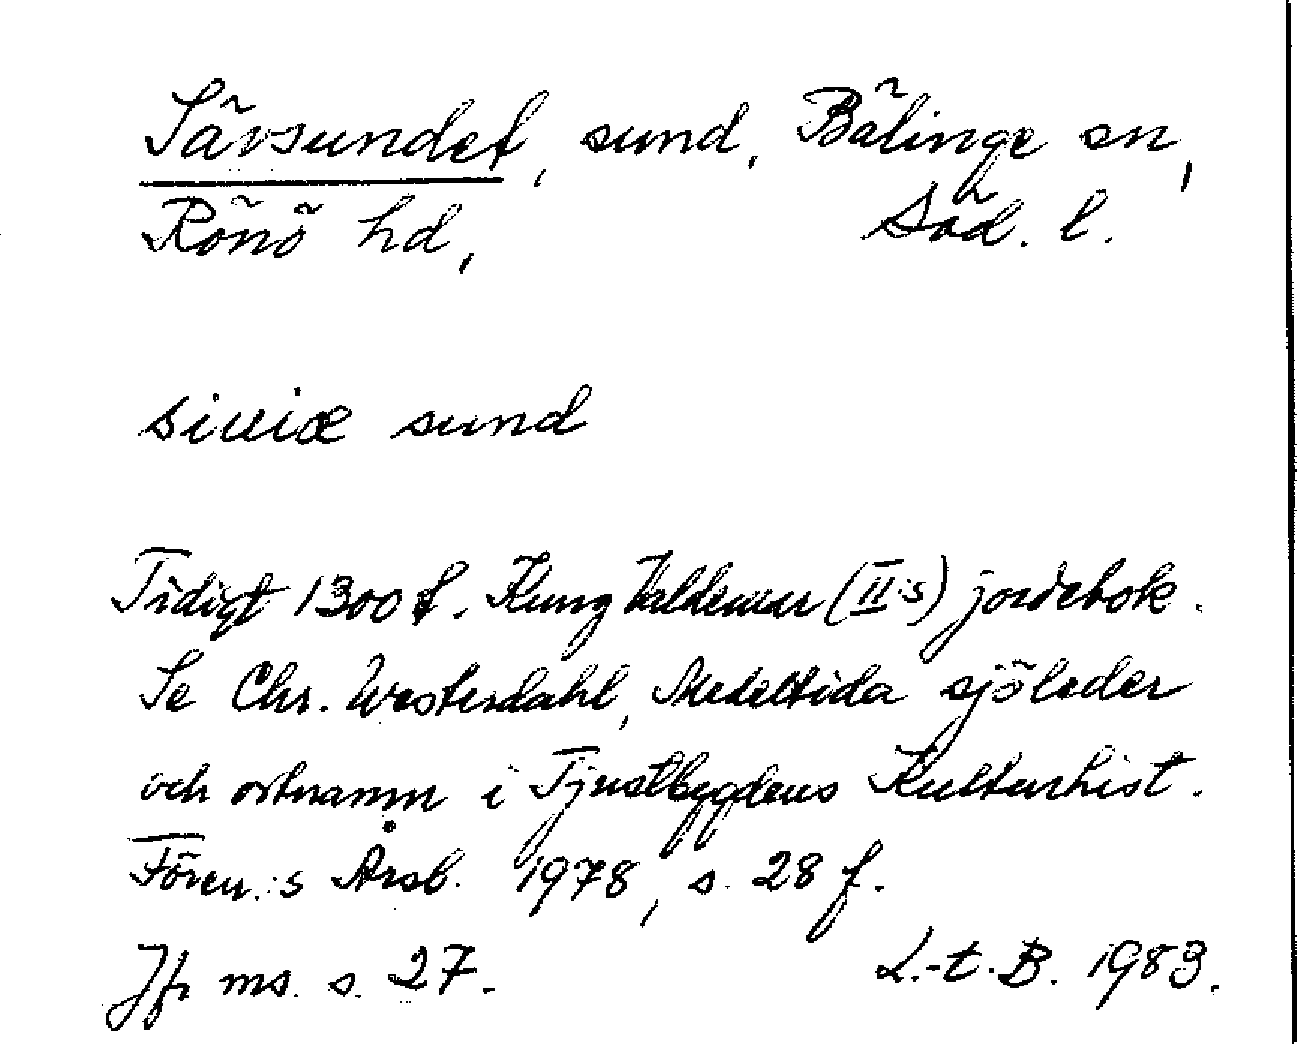 Sävsundet, sund, Bälinge sn,
Rönö hd, Söd. l.
siuiæ sund
Tidigt 1300 t. Kung Valdemar (II:s) jordebok.
Se Chr. Westerdahl, Medeltida sjöleder
och ortnamn i Tjustbygdens Kulturhist.
Fören.:s Årsb. 1978, s. 28 f.
Jfr ms. s. 27. L.-t. B. 1983.